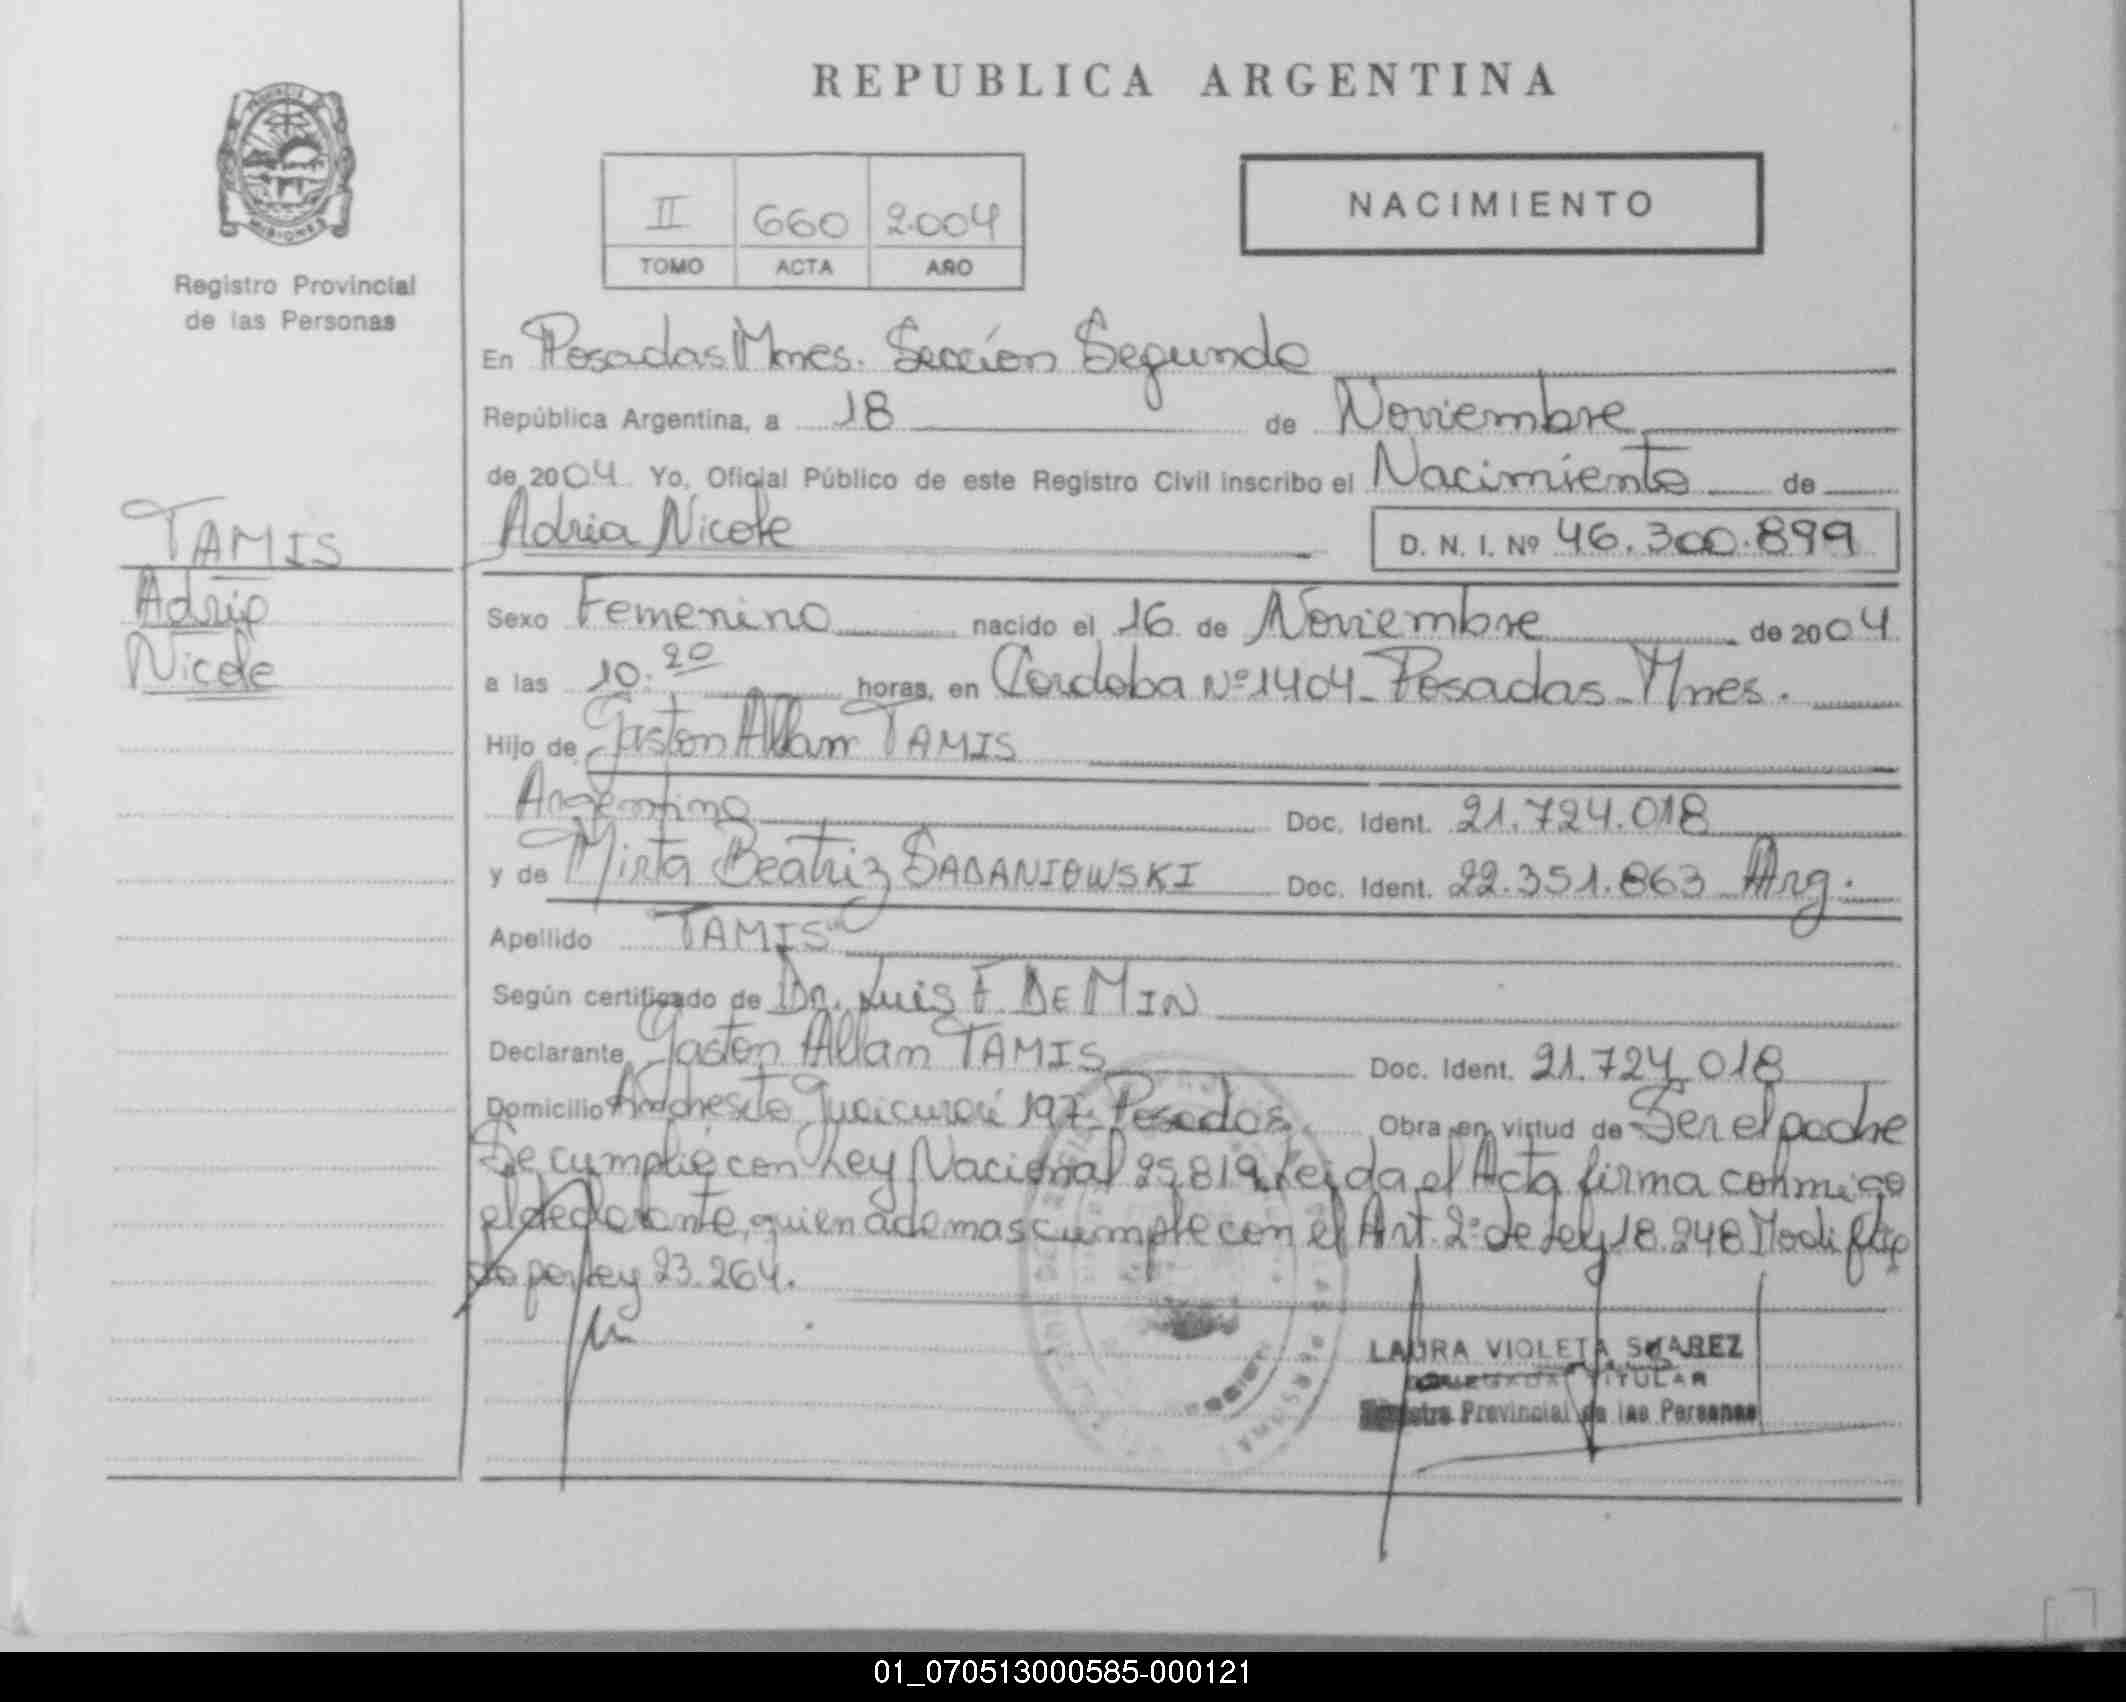 REPUBLICA ARGENTINA
PROVINCIA DE MISIONES
Registro Provincial
de las Personas
II 660 2.004
TOMO ACTA AÑO
NACIMIENTO
En Posadas Mnes. Sección Segunda
República Argentina, a 18 de Noviembre
de 2004 Yo, Oficial Público de este Registro Civil inscribo el Nacimiento de
Adria Nicole D. N. I. Nº 46.300.899
TAMIS
Adria
Nicole
Sexo Femenino nacido el 16 de Noviembre de 2004
a las 10:20 horas, en Cordoba Nº 1404 - Posadas - Mnes.
Hijo de Gaston Allam TAMIS
Argentino Doc. Ident. 21.724.018
y de Mirta Beatriz SADANIOWSKI Doc. Ident. 22.351.863 Arg.
Apellido "TAMIS"
Según certificado de Dr. Luis F. DE MIN
Declarante Gaston Allam TAMIS Doc. Ident. 21.724.018
Domicilio Andresito Guaicurarí 197 - Posadas. Obra en virtud de Ser el padre
Se cumplió con Ley Nacional 25.819. Leida el Acta firma conmigo
el declarante, quien ademas cumple con el Art. 2º de Ley 18.248 Modifica
do por Ley 23.264.
LAURA VIOLETA SUAREZ
DELEGADA TITULAR
Registro Provincial de las Personas
01_070513000585-000121